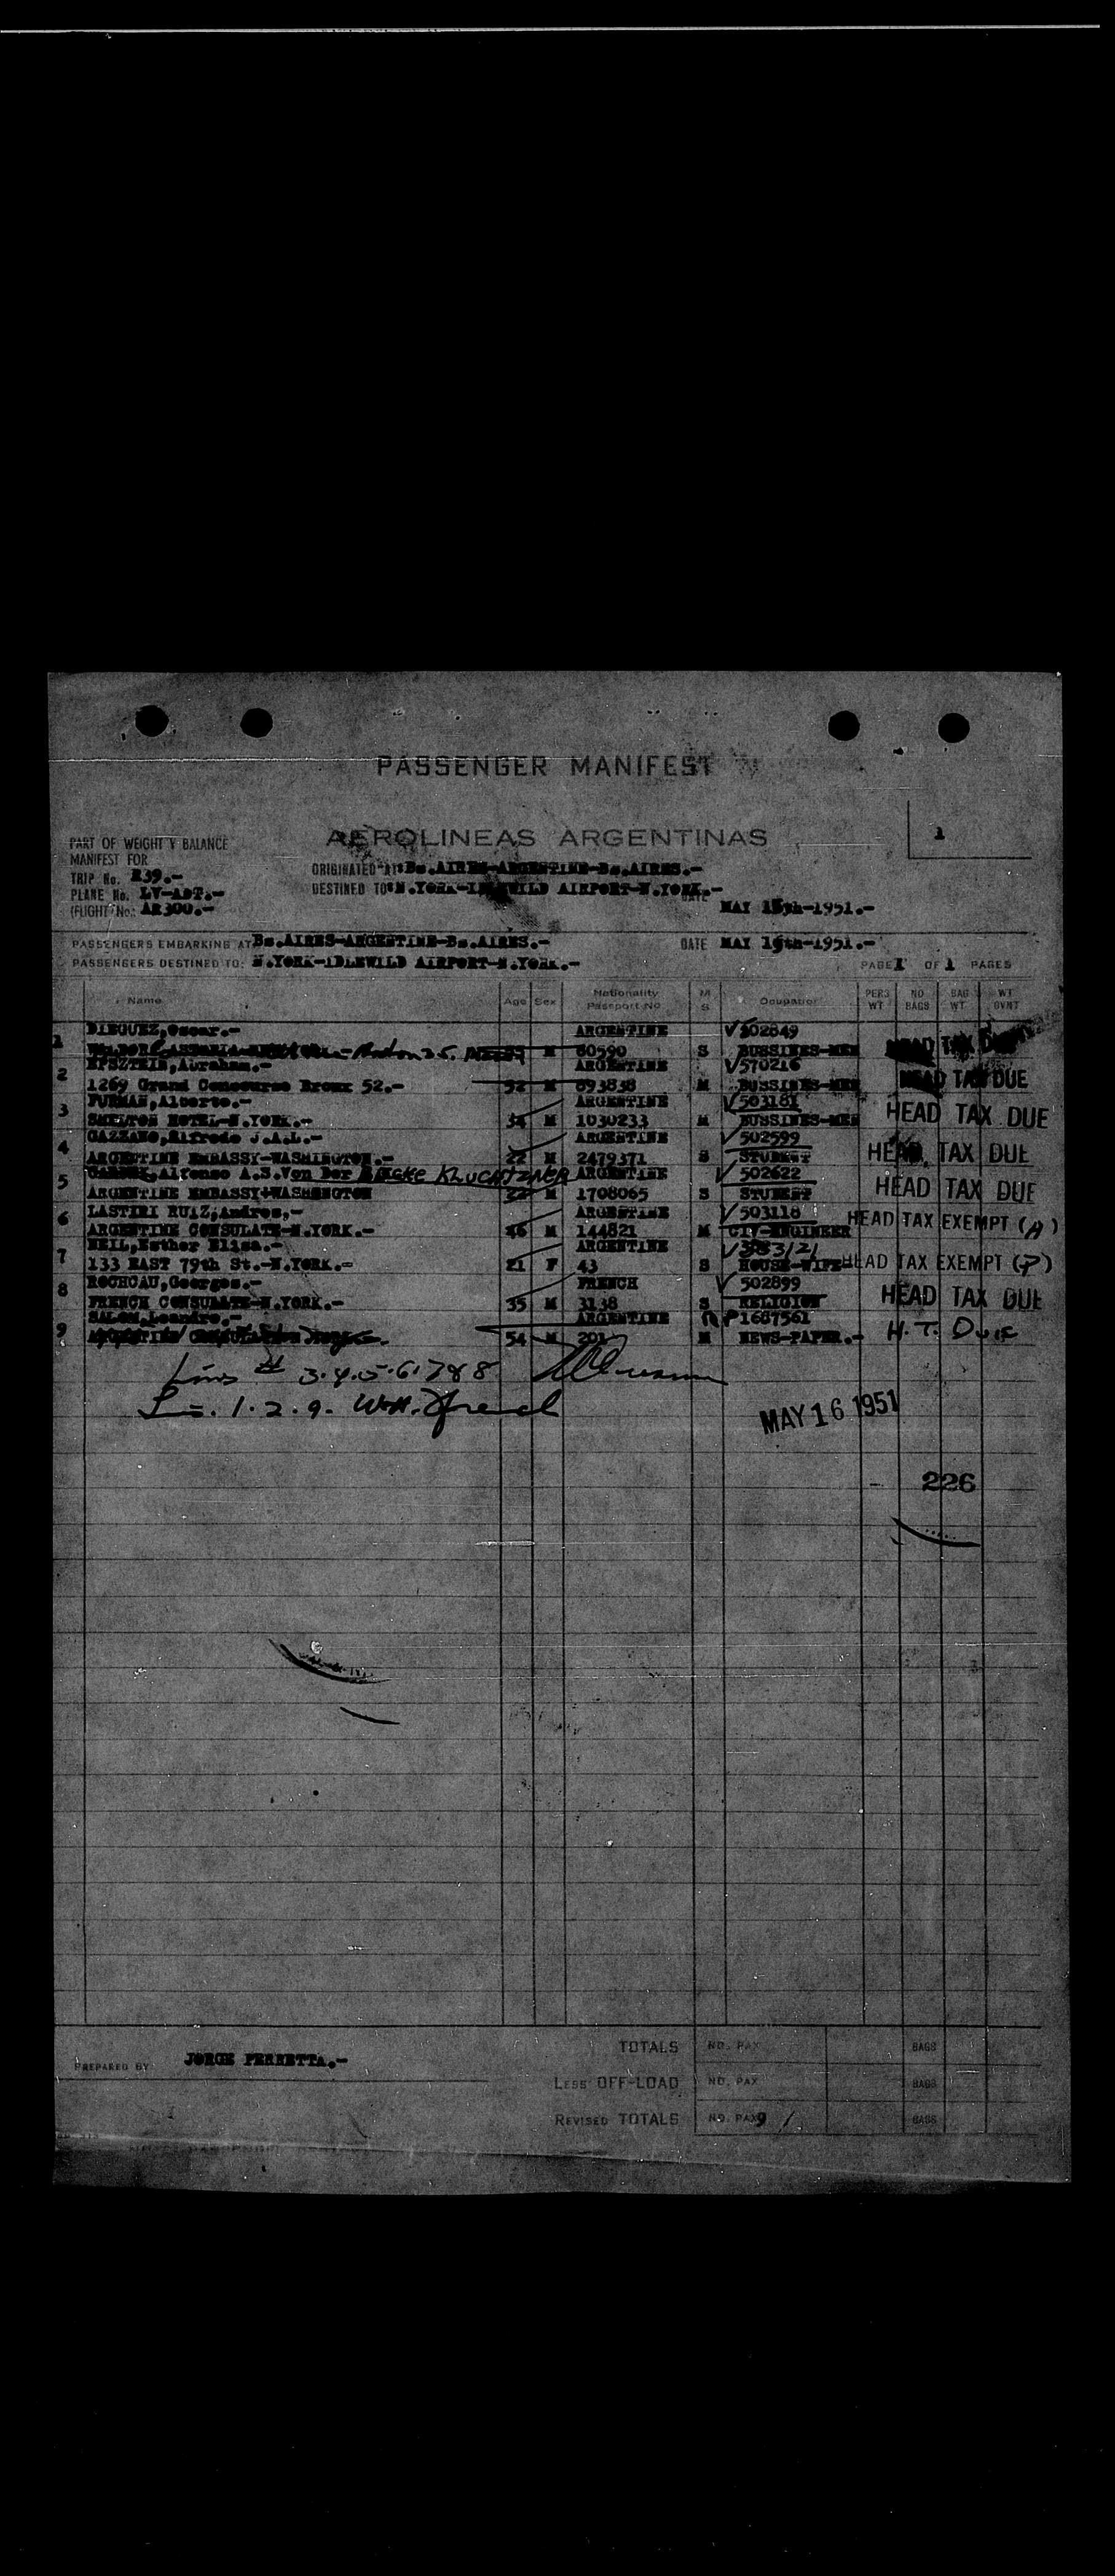 PASSENGER MANIFEST
1
AEROLINEAS ARGENTINAS
PART OF WEIGHT Y BALANCE
MANIFEST FOR
TRIP No. 239.-
PLANE No. LV-ADT.-
(FLIGHT No: AR300.-
ORIGINATED AT: Bs.AIRES-ARGENTINE-Bs.AIRES.-
DESTINED TO: N.YORK-IDLEWILD AIRPORT-N.YORK.-
DATE MAY 15th-1951.-
PASSENGERS EMBARKING AT Bs.AIRES-ARGENTINE-Bs.AIRES.- DATE MAY 16th-1951.-
PASSENGERS DESTINED TO: N.YORK-IDLEWILD AIRPORT-N.YORK.- PAGE 1 OF 1 PAGES
Name Age Sex Nationality Passport No M S Ocupation PERS WT NO BAGS BAG WT WT GVNT
DIEGUEZ,Oscar.- ARGENTINE 502849
1 M 60590 S BUSSINES-MEN HEAD TAX
EPSZTEIN,Abraham.- ARGENTINE 570216
2 1269 Grand Concourse Bronx 52.- 52 M 893838 M BUSSINES-MEN HEAD TAX DUE
FURMAN,Alberto.- ARGENTINE 503181
3 SHELTON HOTEL-N.YORK.- 34 M 1030233 M BUSSINES-MEN HEAD TAX DUE
GAZZANO,Alfredo J.A.L.- ARGENTINE 502599
4 ARGENTINE EMBASSY-WASHINGTON.- 22 M 2479371 S STUDENT HEAD TAX DUE
Alfonso A.S.Von Der BECKE KLUCHTZNER ARGENTINE 502622
5 ARGENTINE EMBASSY+WASHINGTON 22 M 1708065 S STUDENT HEAD TAX DUE
LASTIRI RUIZ,Andres,- ARGENTINE 503118
6 ARGENTINE CONSULATE-N.YORK.- 46 M 144821 M CIV-ENGINEER HEAD TAX EXEMPT (A)
NEIL,Esther Elisa.- ARGENTINE
7 133 EAST 79th St.-N.YORK.- 21 F 43 S HOUSE-WIFE HEAD TAX EXEMPT (P)
ROCHCAU,Georges.- FRENCH 502899
8 FRENCH CONSULATE-N.YORK.- 35 M 3138 S RELIGION HEAD TAX DUE
SALOM,Leandro.- ARGENTINE 1687561
9 54 M 201 M NEWS-PAPER.- H.T. Due
Lines # 3.4.5.6.7&8
1.2.9.
MAY 16 1951
226
PREPARED BY JORGE FERRETTA.-
TOTALS NO. PAX BAGS
LESS OFF-LOAD NO. PAX BAGS
REVISED TOTALS NO. PAX 9 BAGS